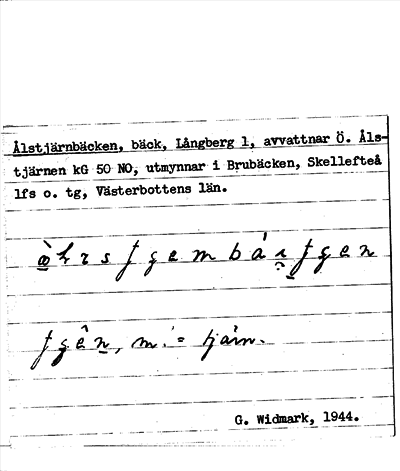 Ålstjärnbäcken, bäck, Långberg 1, avvattnar Ö. Åls-
tjärnen kG 50 NO, utmynnar i Brubäcken, Skellefteå
lfs o. tg, Västerbottens län.
m. = tjärn.
G. Widmark, 1944.